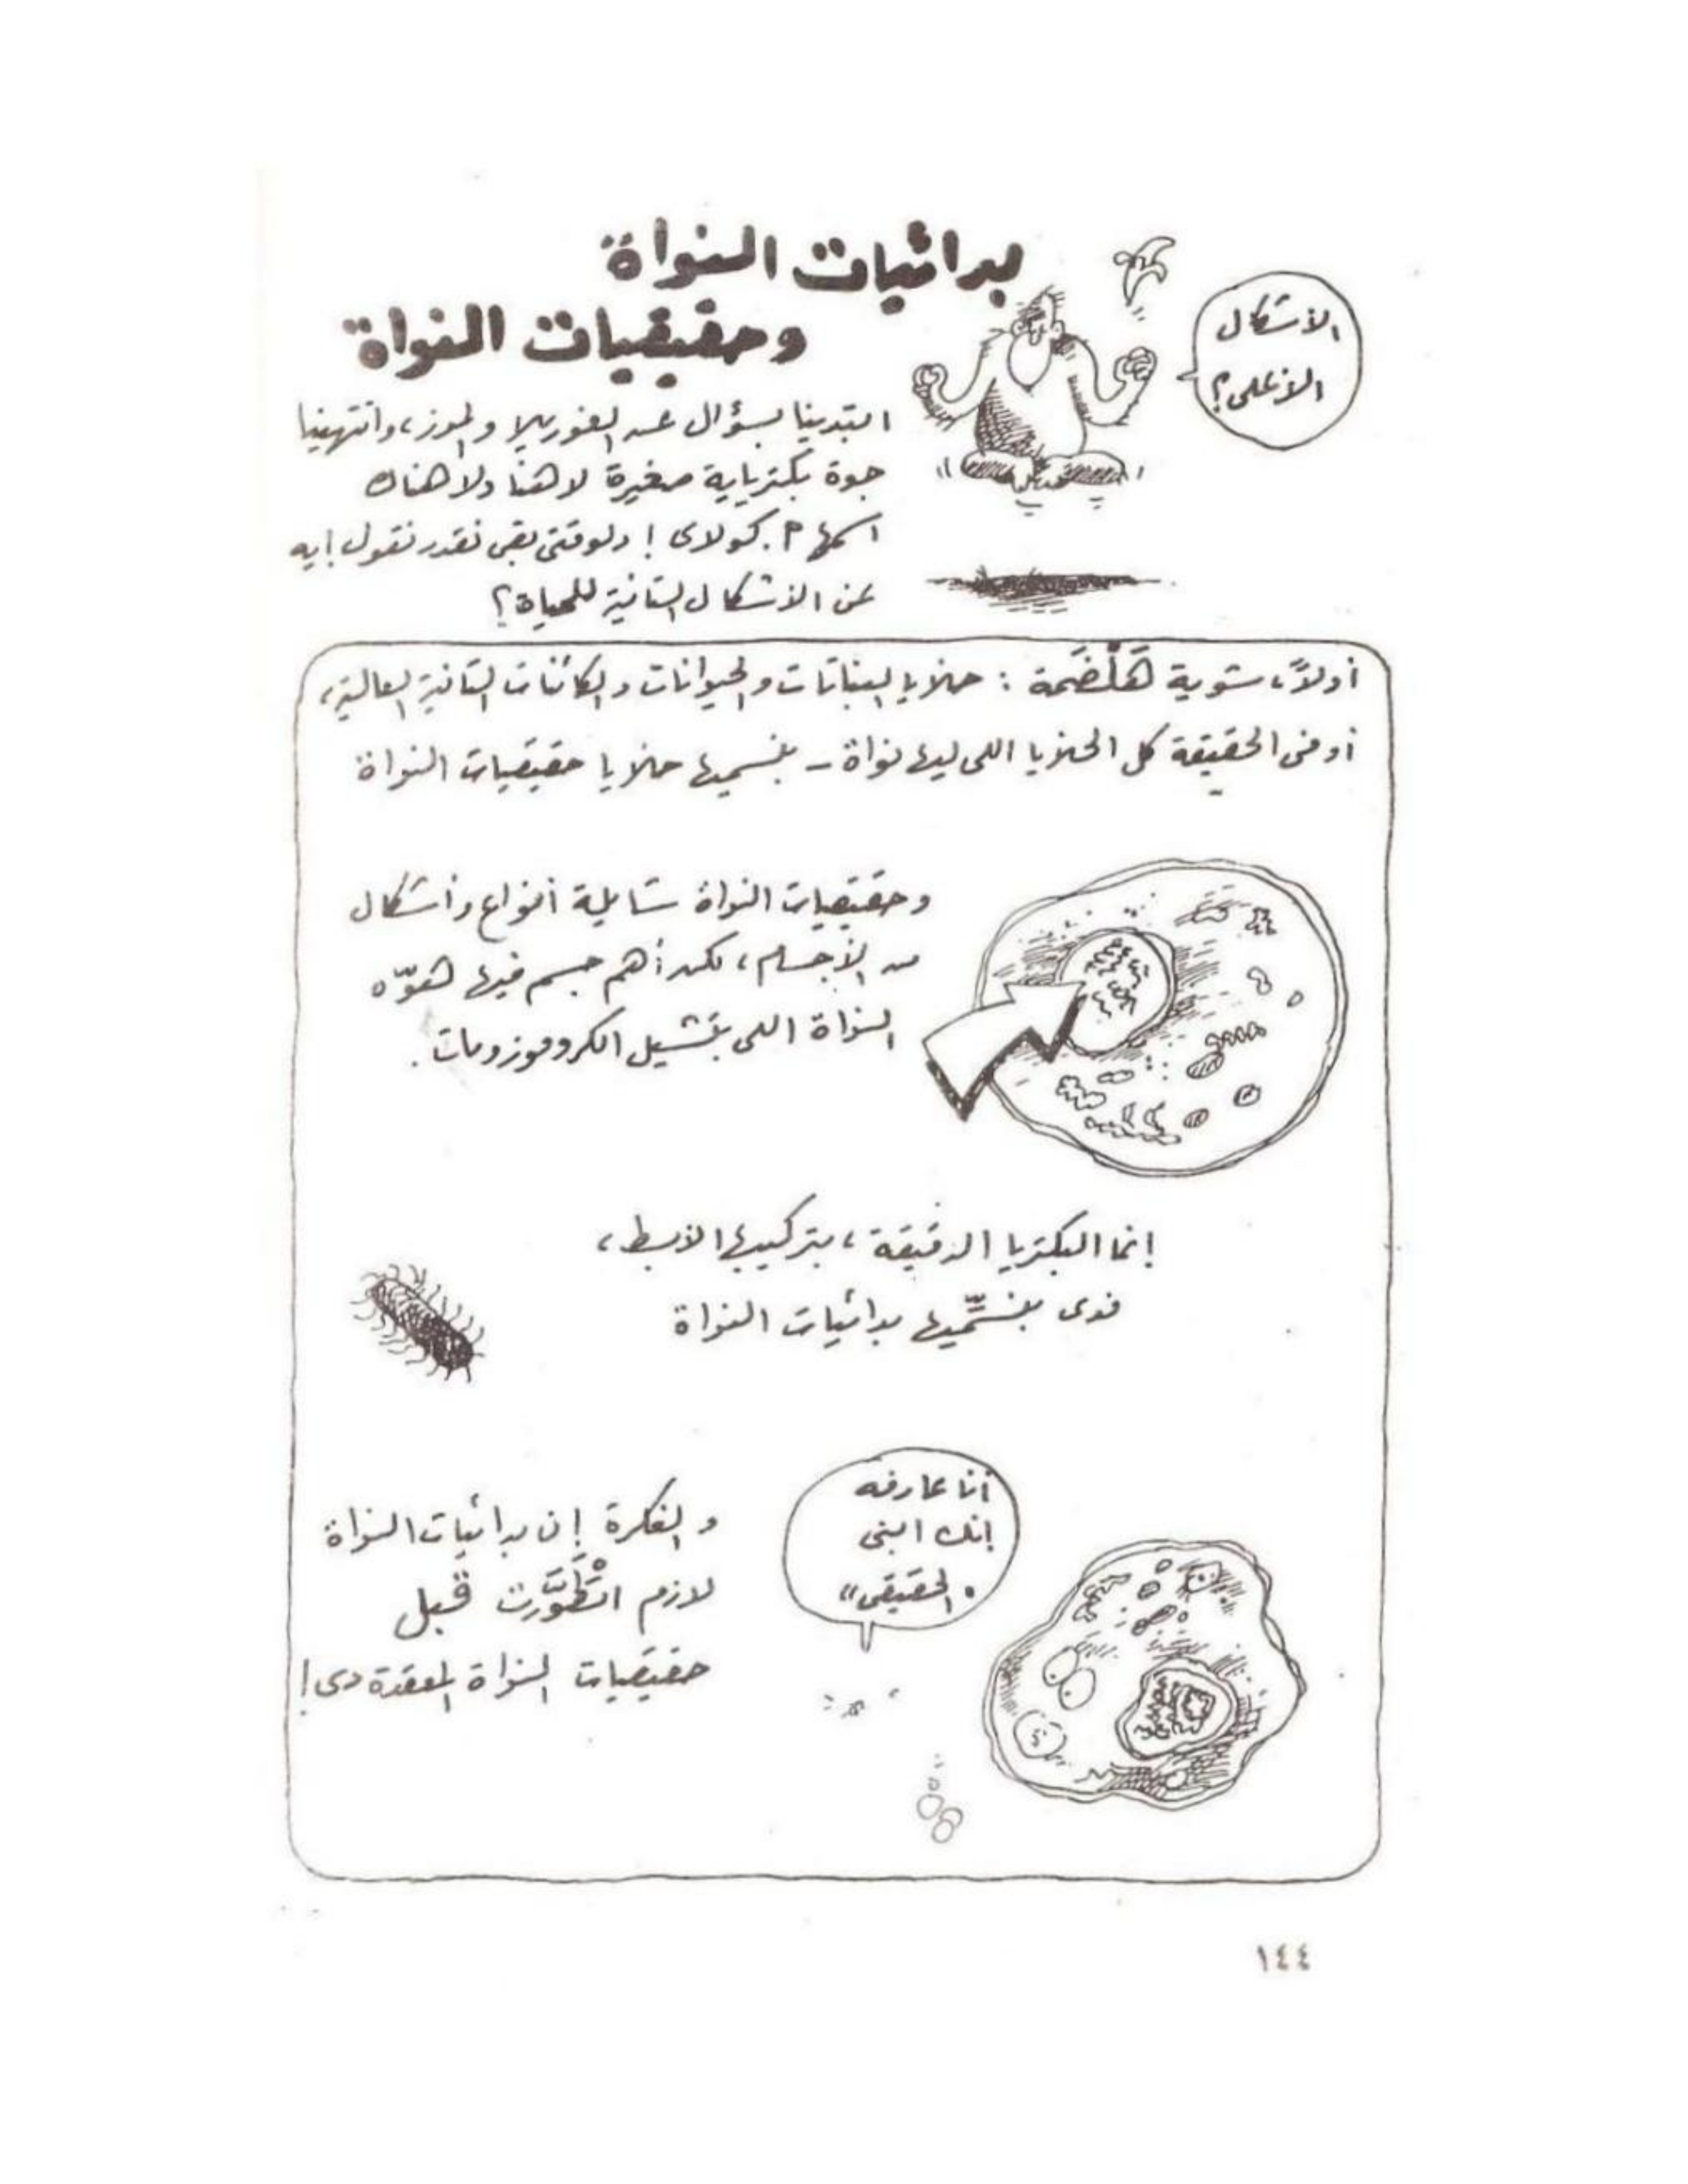 بدائيات النواة
وحقيقيات النواة
الأشكال
الأعلى؟
ابتدينا بسؤال عن الغوريلا والموز، وانتهينا
جوة بكترياية صغيرة لا هنا ولا هناك
اسمها إ. كولاى! دلوقتى بقى نقدر نقول إيه
عن الأشكال التانية للحياة؟
أولاً، شوية هَلْضَمة: خلايا النباتات والحيوانات والكائنات التانية العالية،
أو فى الحقيقة كل الخلايا اللى ليها نواة – بنسميها خلايا حقيقيات النواة
وحقيقيات النواة شايلة أنواع وأشكال
من الأجسام، لكن أهم جسم فيها هوّه
النواة اللى بتشيل الكروموزومات.
إنما البكتريا الدقيقة، بتركيبها الأبسط،
فدى بنسمِّيها بدائيات النواة
أنا عارفه
إنك ابنى
الحقيقى"
والفكرة إن بدائيات النواة
لازم اتْطَوَّرت قبل
حقيقيات النواة المعقدة دى!
١٤٤